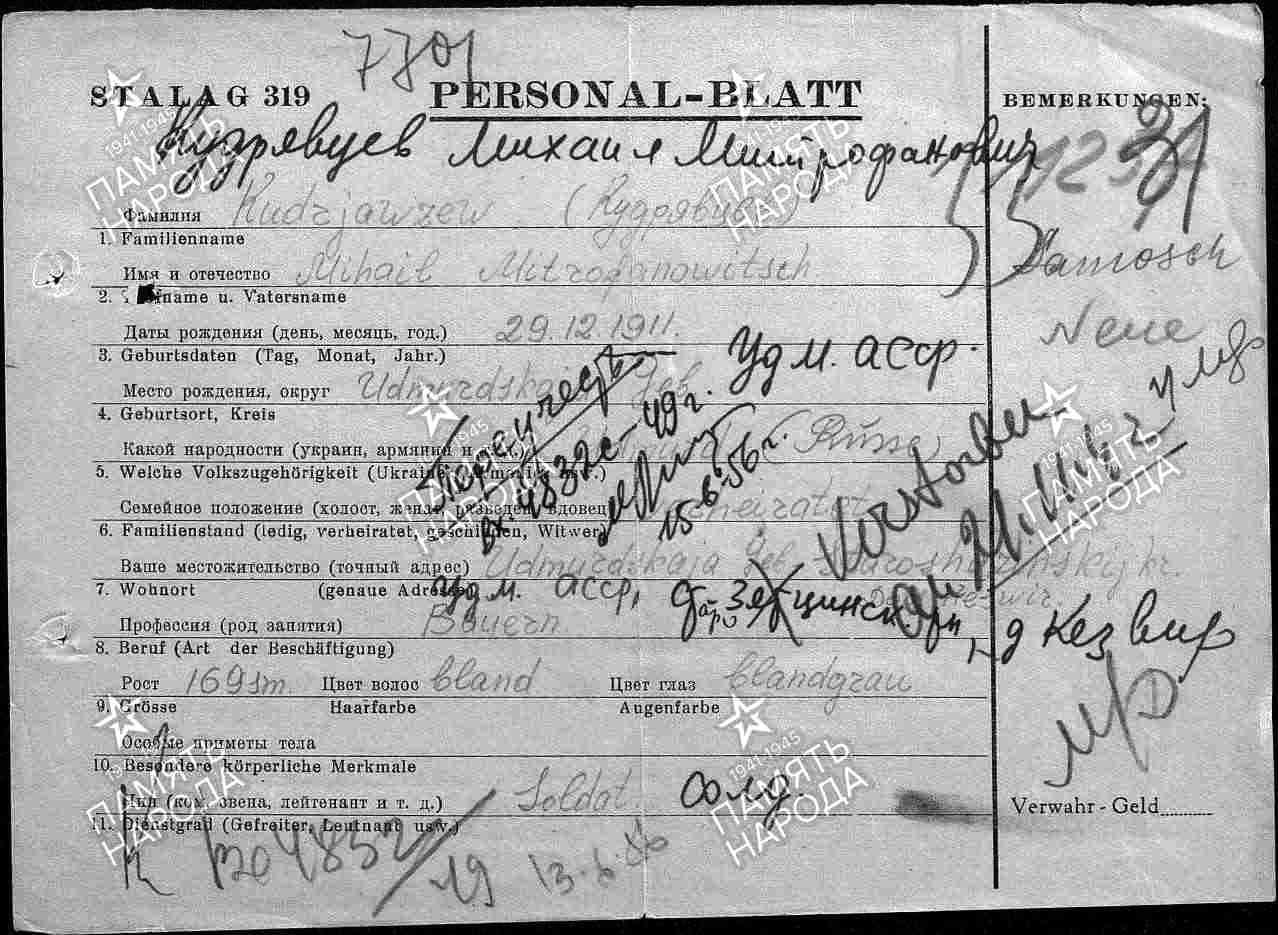 7701
STALAG 319 PERSONAL-BLATT BEMERKUNGEN:
Кудрявцев Михаил Митрофанович
Фамилия Kudrjawzew (Кудрявцев)
1. Familienname
Имя и отчество Mihail Mitrofanowitsch
2. name u. Vatersname
Zamosch
Даты рождения (день, месяць, год.) 29.12.1911.
3. Geburtsdaten (Tag, Monat, Jahr.)
Neue
Удм. АССР.
Место рождения, округ Udmurdskaja Geb.
4. Geburtsort, Kreis
Какой народности (украин, армянин и т.) (Russe)
5. Welche Volkszugehörigkeit (Ukrainer, Armenier usw.)
вх. 4832с-49г.
15.6.56г.
Verstorben
Семейное положение (холост, женат, разведен, вдовец) verheiratet
6. Familienstand (ledig, verheiratet, geschieden, Witwer)
Ваше местожительство (точный адрес) Udmurdskaja Geb.
7. Wohnort (genaue Adresse)
Удм. АССР,
д Кез вир
Профессия (род занятия) Bauern
8. Beruf (Art der Beschäftigung)
Рост 169 sm. Цвет волос bland Цвет глаз blandgrau
9. Grösse Haarfarbe Augenfarbe
Особые приметы тела
10. Besondere körperliche Merkmale
Чин (ком. звена, лейтенант и т. д.) Soldat солд.
11. Dienstgrad (Gefreiter, Leutnant usw.)
Verwahr - Geld
19 13.6.56
1941-1945
ПАМЯТЬ
НАРОДА